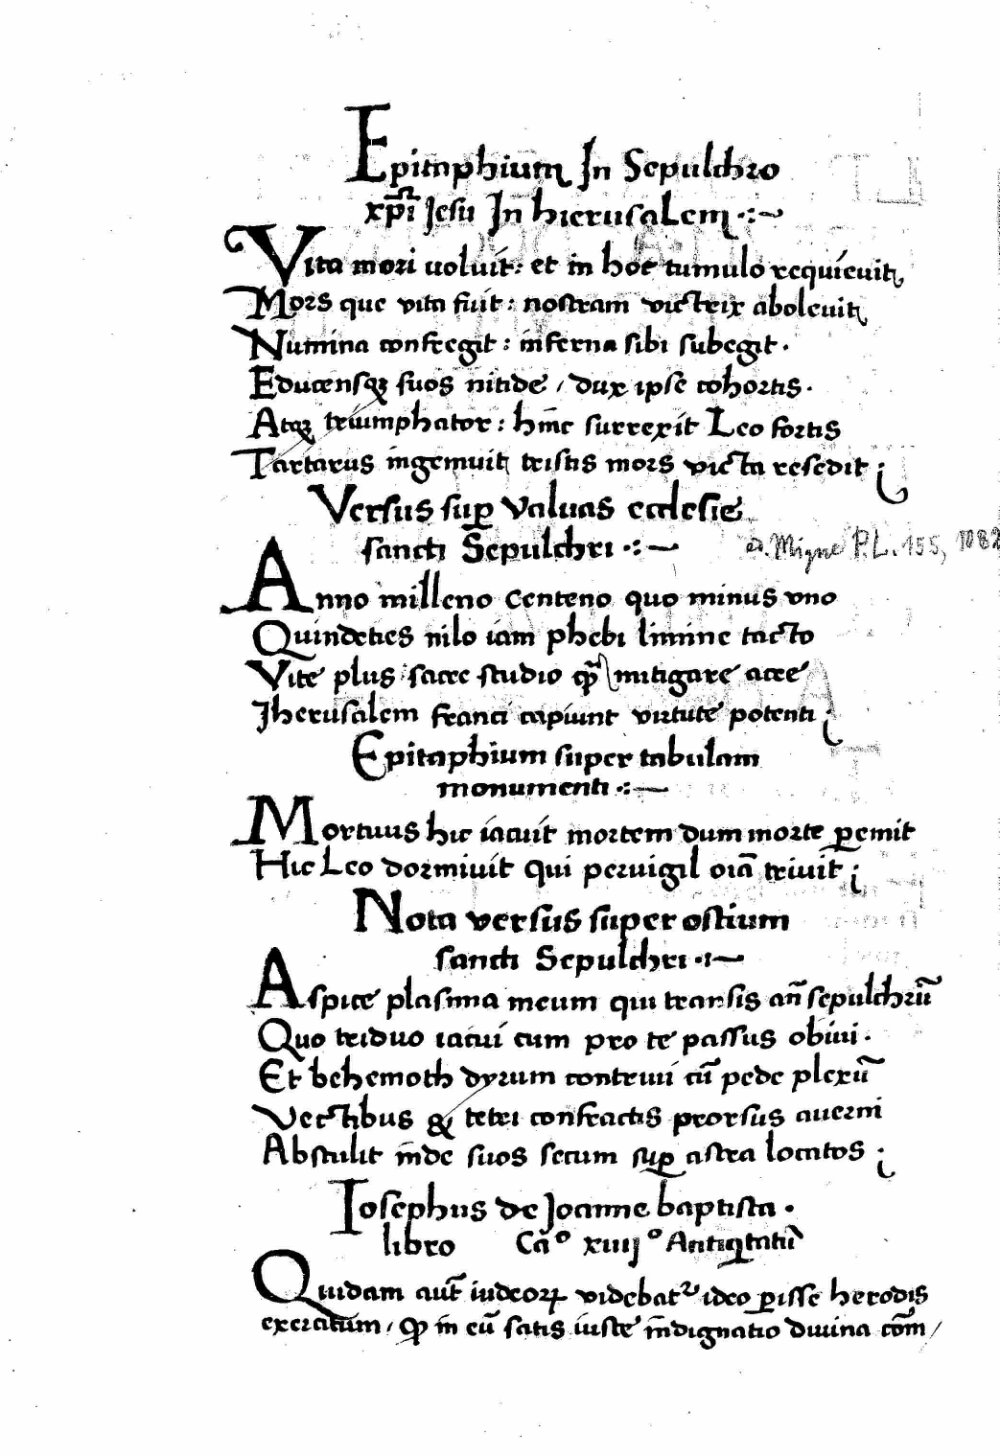 Epitaphium In Sepulchro
xp̄i Jesu In hierusalem ·:~
Vita mori voluit: et in hoc tumulo requieuit,
Mors que vita fuit: nostram victrix aboleuit,
Numina confregit: inferna sibi subegit.
Educensqȝ suos nitide / dux ipse cohortis.
Atqȝ triumphator: hinc surrexit Leo fortis
Tartarus ingemuit, tristis mors victa resedit;
Versus suꝑ valuas ecclesie
sancti Sepulchri ·:~
ed. Migne P.L. 155, 1082
Anno milleno centeno quo minus vno
Quindecies nilo iam phebi limine tacto
Vite plus sacre studio mitigare acre
Jherusalem franci capiunt virtute potenti;
Epitaphium super tabulam
monumenti ·:~
Mortuus hic iacuit mortem dum morte ꝑemit
Hic Leo dormiuit qui peruigil oīa triuit;
Nota versus super ostium
sancti Sepulchri ·:~
Aspice plasma meum qui transis an̄ sepulchrū
Quo triduo iacui cum pro te passus obiui.
Et behemoth dyrum contriui cū pede plexū
Vectibus & tetri confractis prorsus auerni
Abstulit inde suos secum suꝑ astra locatos;
Iosephus de Joanne baptista.
libro Cāᵒ xiiijᵒ Antiqͥtatū
Quidam aut̄ iudeoꝝ videbat᷑ ideo ꝑisse herodis
exercitum / ꝙ in eū satis iuste indignatio diuina cōm /